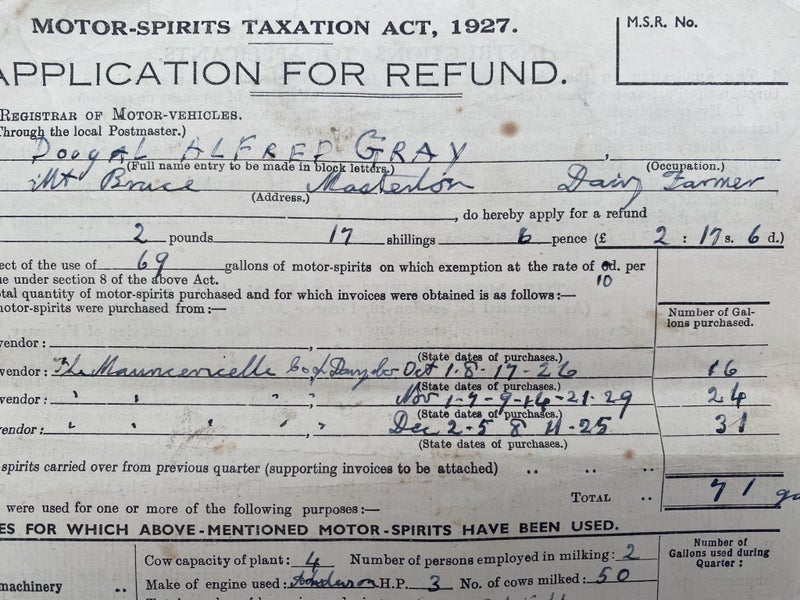 MOTOR-SPIRITS TAXATION ACT, 1927.
M.S.R. No.
APPLICATION FOR REFUND.
REGISTRAR OF MOTOR-VEHICLES.
Through the local Postmaster.)
DOUGAL ALFRED GRAY,
(Full name entry to be made in block letters.) (Occupation.)
Mt Bruce Masterton Dairy Farmer
(Address.)
, do hereby apply for a refund
2 pounds 17 shillings 6 pence (£ 2 : 17 s. 6 d.)
ect of the use of 69 gallons of motor-spirits on which exemption at the rate of d. per
10
e under section 8 of the above Act.
tal quantity of motor-spirits purchased and for which invoices were obtained is as follows:—
motor-spirits were purchased from:—
Number of Gal-
lons purchased.
vendor:
(State dates of purchases.)
vendor: The Mauriceville Co Oct 1-8-17-26 16
(State dates of purchases.)
vendor: " " " " Nov 1-7-9-14-21-29 24
(State dates of purchases.)
vendor: " " " " Dec 2-5 8 11-25 31
(State dates of purchases.)
spirits carried over from previous quarter (supporting invoices to be attached) .. .. ..
TOTAL .. 71 ga
were used for one or more of the following purposes:—
ES FOR WHICH ABOVE-MENTIONED MOTOR-SPIRITS HAVE BEEN USED.
Number of
Gallons used during
Quarter:
Cow capacity of plant: 4 Number of persons employed in milking: 2
machinery .. Make of engine used: Anderson H.P. 3 No. of cows milked: 50